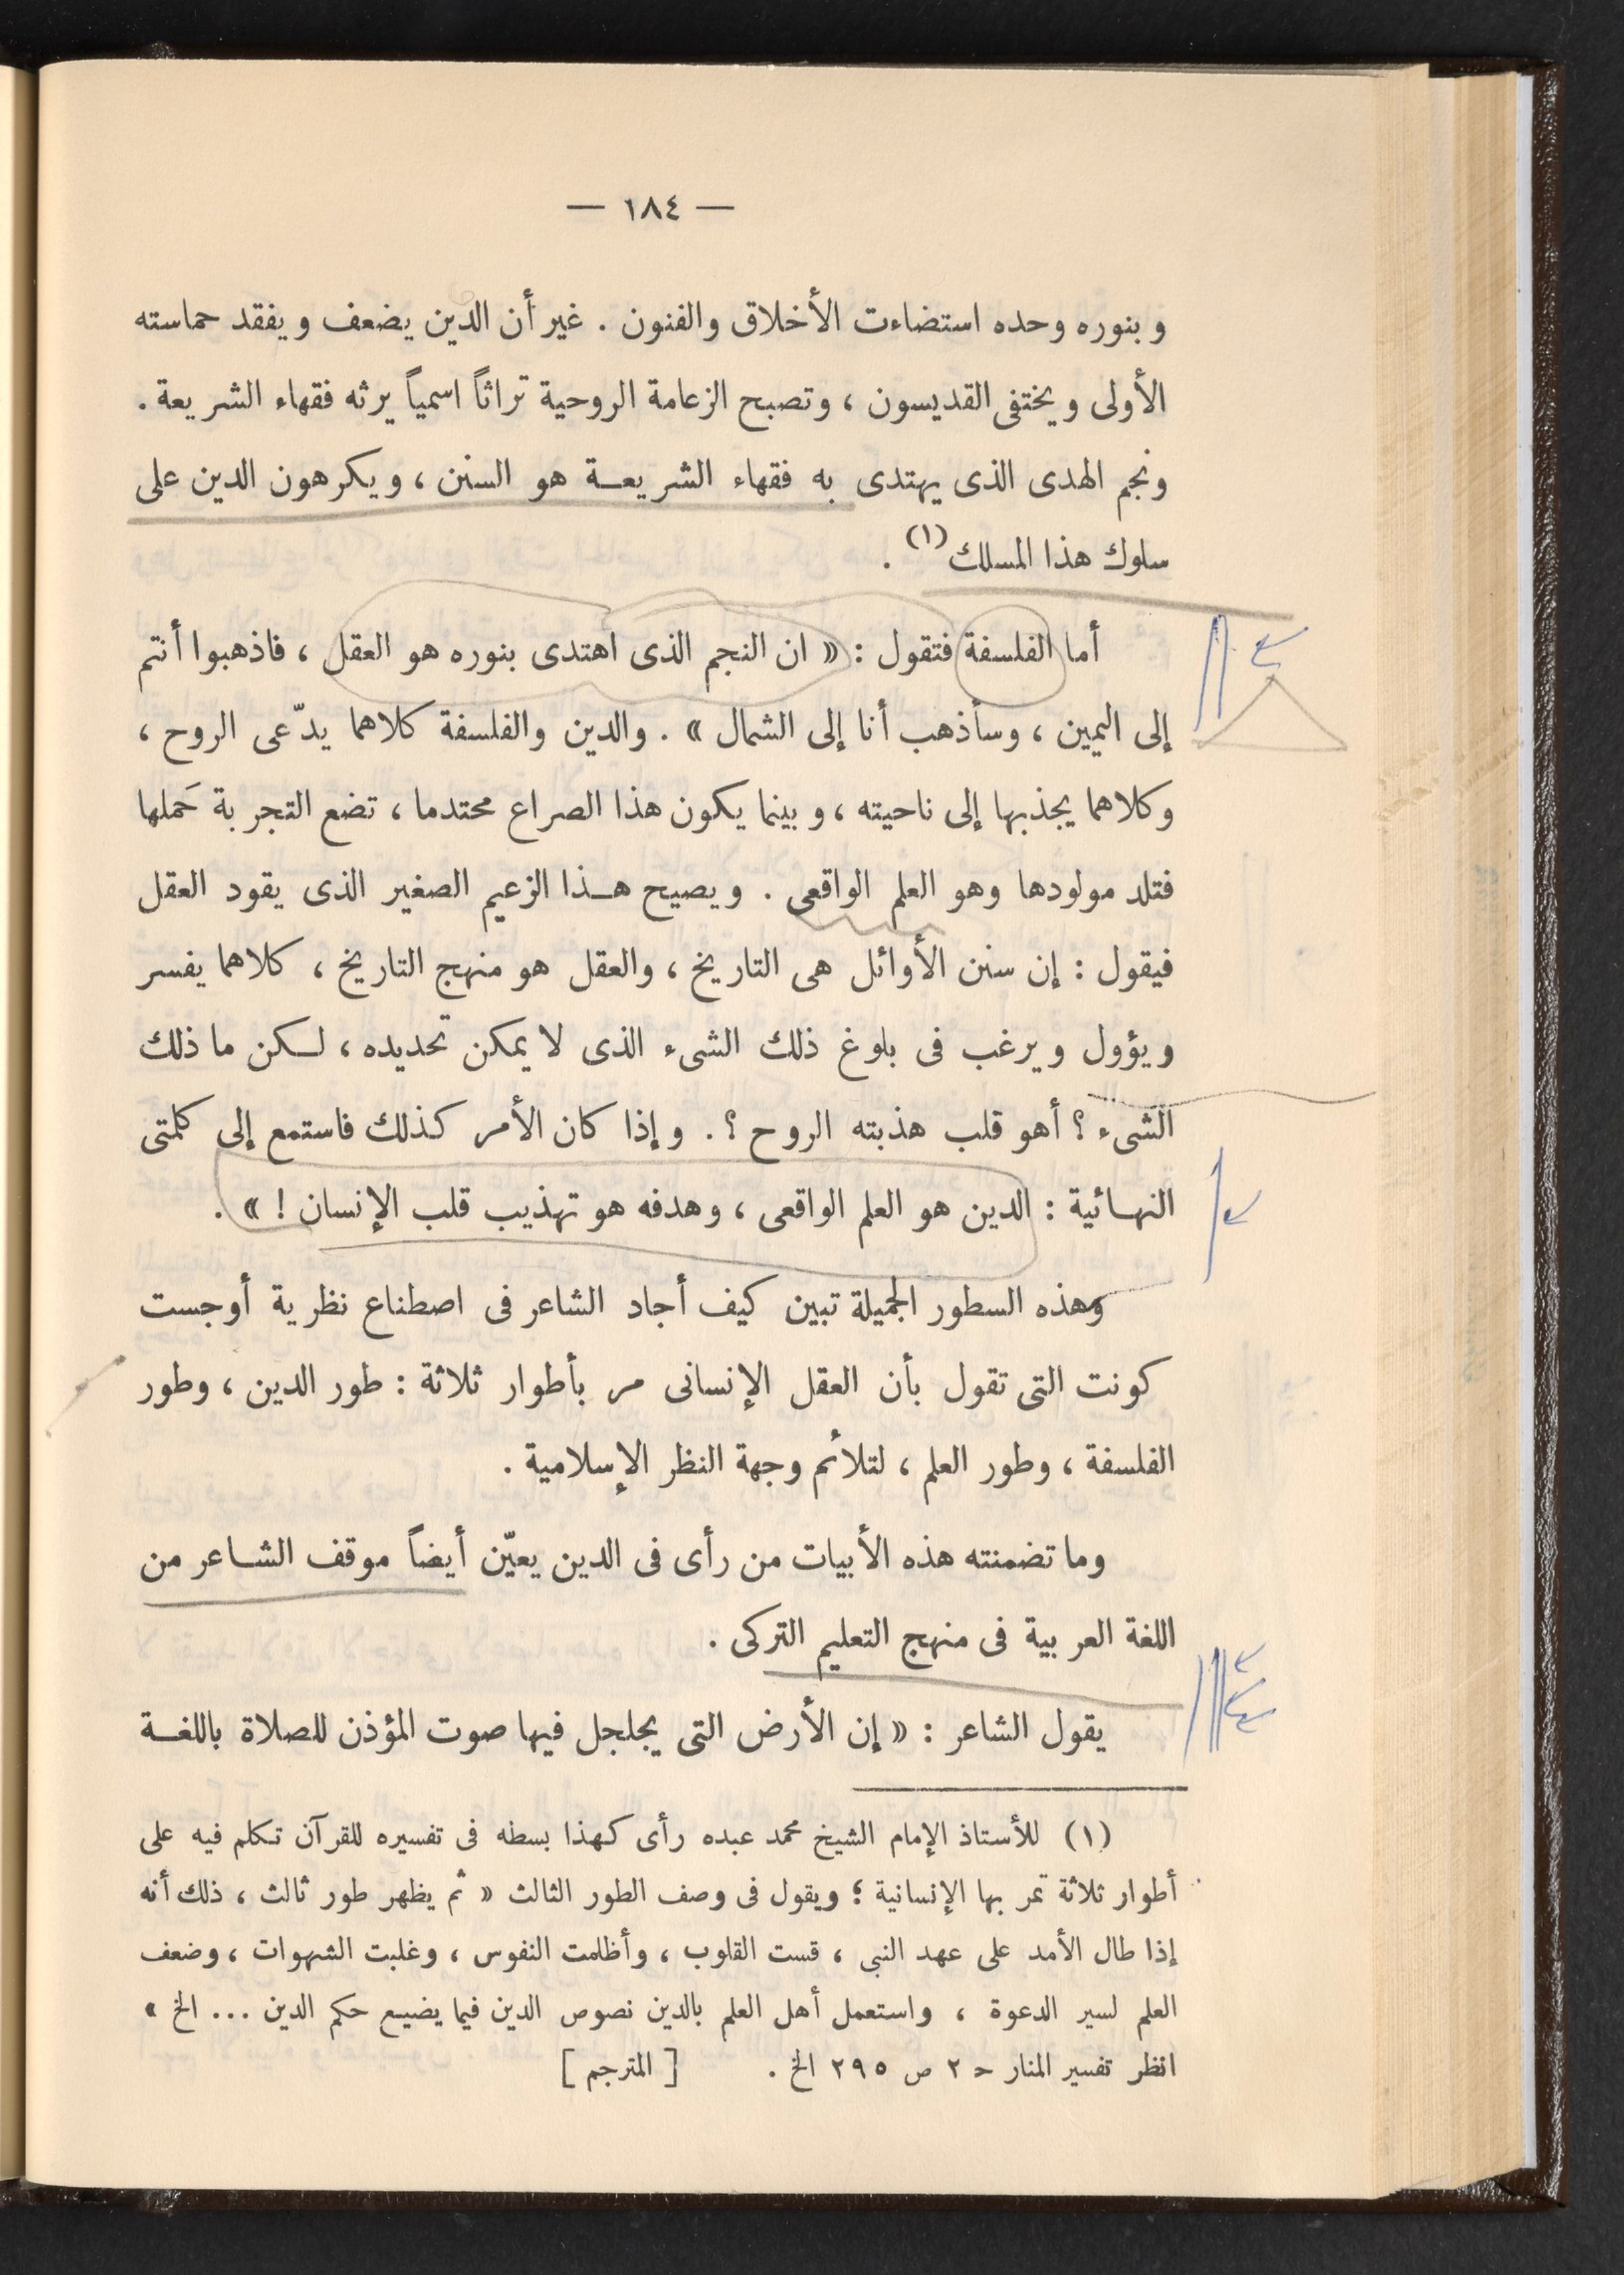 — ١٨٤ —
وبنوره وحده استضاءت الأخلاق والفنون . غير أن الدين يضعف ويفقد حماسته
الأولى ويختفى القديسون ، وتصبح الزعامة الروحية تراثاً اسمياً يرثه فقهاء الشريعة .
ونجم الهدى الذى يهتدى به فقهاء الشريعة هو السنن ، ويكرهون الدين على
سلوك هذا المسلك (١) .
أما الفلسفة فتقول : « ان النجم الذى اهتدى بنوره هو العقل ، فاذهبوا أنتم
إلى اليمين ، وسأذهب أنا إلى الشمال » . والدين والفلسفة كلاهما يدّعى الروح ،
وكلاهما يجذبها إلى ناحيته ، وبينما يكون هذا الصراع محتدما ، تضع التجربة حَملها
فتلد مولودها وهو العلم الواقعى . ويصيح هذا الزعيم الصغير الذى يقود العقل
فيقول : إن سنن الأوائل هى التاريخ ، والعقل هو منهج التاريخ ، كلاهما يفسر
ويؤول ويرغب فى بلوغ ذلك الشىء الذى لا يمكن تحديده ، لكن ما ذلك
الشىء ؟ أهو قلب هذبته الروح ؟ . وإذا كان الأمر كذلك فاستمع إلى كلمتى
النهائية : الدين هو العلم الواقعى ، وهدفه هو تهذيب قلب الإنسان ! » .
وهذه السطور الجميلة تبين كيف أجاد الشاعر فى اصطناع نظرية أوجست
كونت التى تقول بأن العقل الإنسانى مر بأطوار ثلاثة : طور الدين ، وطور
الفلسفة ، وطور العلم ، لتلائم وجهة النظر الإسلامية .
وما تضمنته هذه الأبيات من رأى فى الدين يعيّن أيضاً موقف الشاعر من
اللغة العربية فى منهج التعليم التركى .
يقول الشاعر : « إن الأرض التى يجلجل فيها صوت المؤذن للصلاة باللغة
(١) للأستاذ الإمام الشيخ محمد عبده رأى كهذا بسطه فى تفسيره للقرآن تكلم فيه على
أطوار ثلاثة تمر بها الإنسانية ؛ ويقول فى وصف الطور الثالث « ثم يظهر طور ثالث ، ذلك أنه
إذا طال الأمد على عهد النبى ، قست القلوب ، وأظلمت النفوس ، وغلبت الشهوات ، وضعف
العلم لسير الدعوة ، واستعمل أهل العلم بالدين نصوص الدين فيما يضيع حكم الدين ... الخ »
انظر تفسير المنار حـ ٢ ص ٢٩٥ الخ . [ المترجم ]